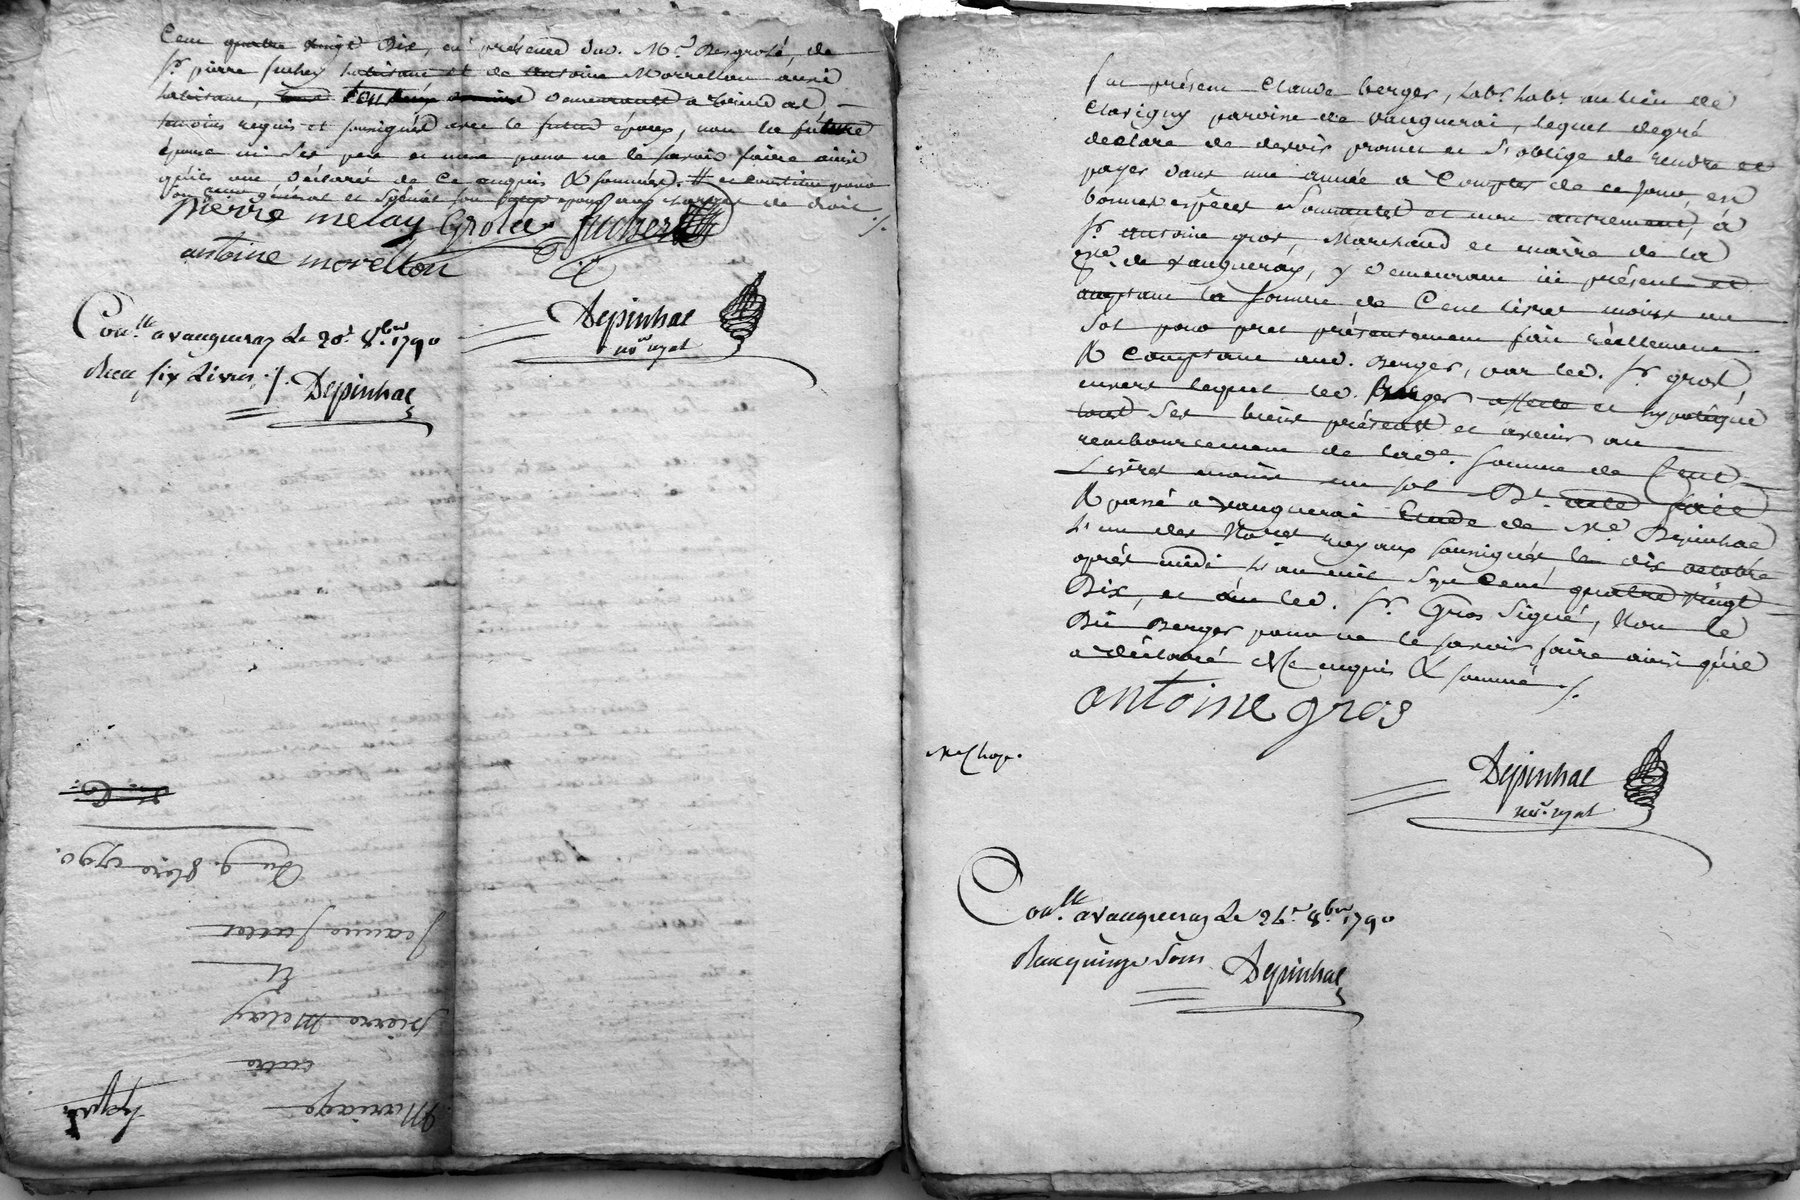 Cent quatre vingt Dix, en présence dud. Me. Desgrolé, de
Sr. pierre fucher habitant et de antoine Morrellon aussi
habitant, demeurants a
temoins requis et soussignés avec le futur époux, non la future
épouse ni Ses pere et mere pour ne le savoir faire ainsi
qu'ils ont Déclaré de ce enquis & sommés. # et constitue pour
son général et Spécial aux charges de droit ./.
pierre melay Grolée fucher
antoine morellon
Depinhac
nore. royal
Con.lle a vaugneray Le 20e. 8bre. 1790
Reçu six Livres ./. Depinhac
Mariage
entre
pierre Melay
&
Jeanne
Du 9. 8bre 1790.
fut présent Claude berger, labr. habt. au lieu de
Clavigny paroisse de vaugnerai, lequel degré
declare de devoir promet et S'oblige de rendre et
payer dans une année a Compter de ce jour, en
bonnes espèces Sonnantes et non autrement, á
Sr. antoine gros, Marchand et maire de la
de vaugneray, y Demeurant ici présent et
acceptant la somme de Cent livres moins un
Sol pour pret présentement fait réellement
& Comptant aud. Berger, par led. Sr. gros
envers lequel led. Berger affecte et hypotéque
tous Ses biens présents et avenir au
remboursement de lade. somme de Cent
Livres moins un sol Dt. acte fait
& passé a vaugnerai Etude de Me. Depinhac
L'un des Nores royaux soussignés, le dix octobre
aprés midi L'an mil Sept Cent quatre vingt
Dix, et a led. Sr. Gros Signé, Non le
Dit Berger pour ne le savoir faire ainsi qu'il
a déclaré de ce enquis & sommé ./.
antoine gros
Depinhac
nore. royal
Con.lle a vaugneray Le 26e. 8bre. 1790
Reçu quinze sous Depinhac